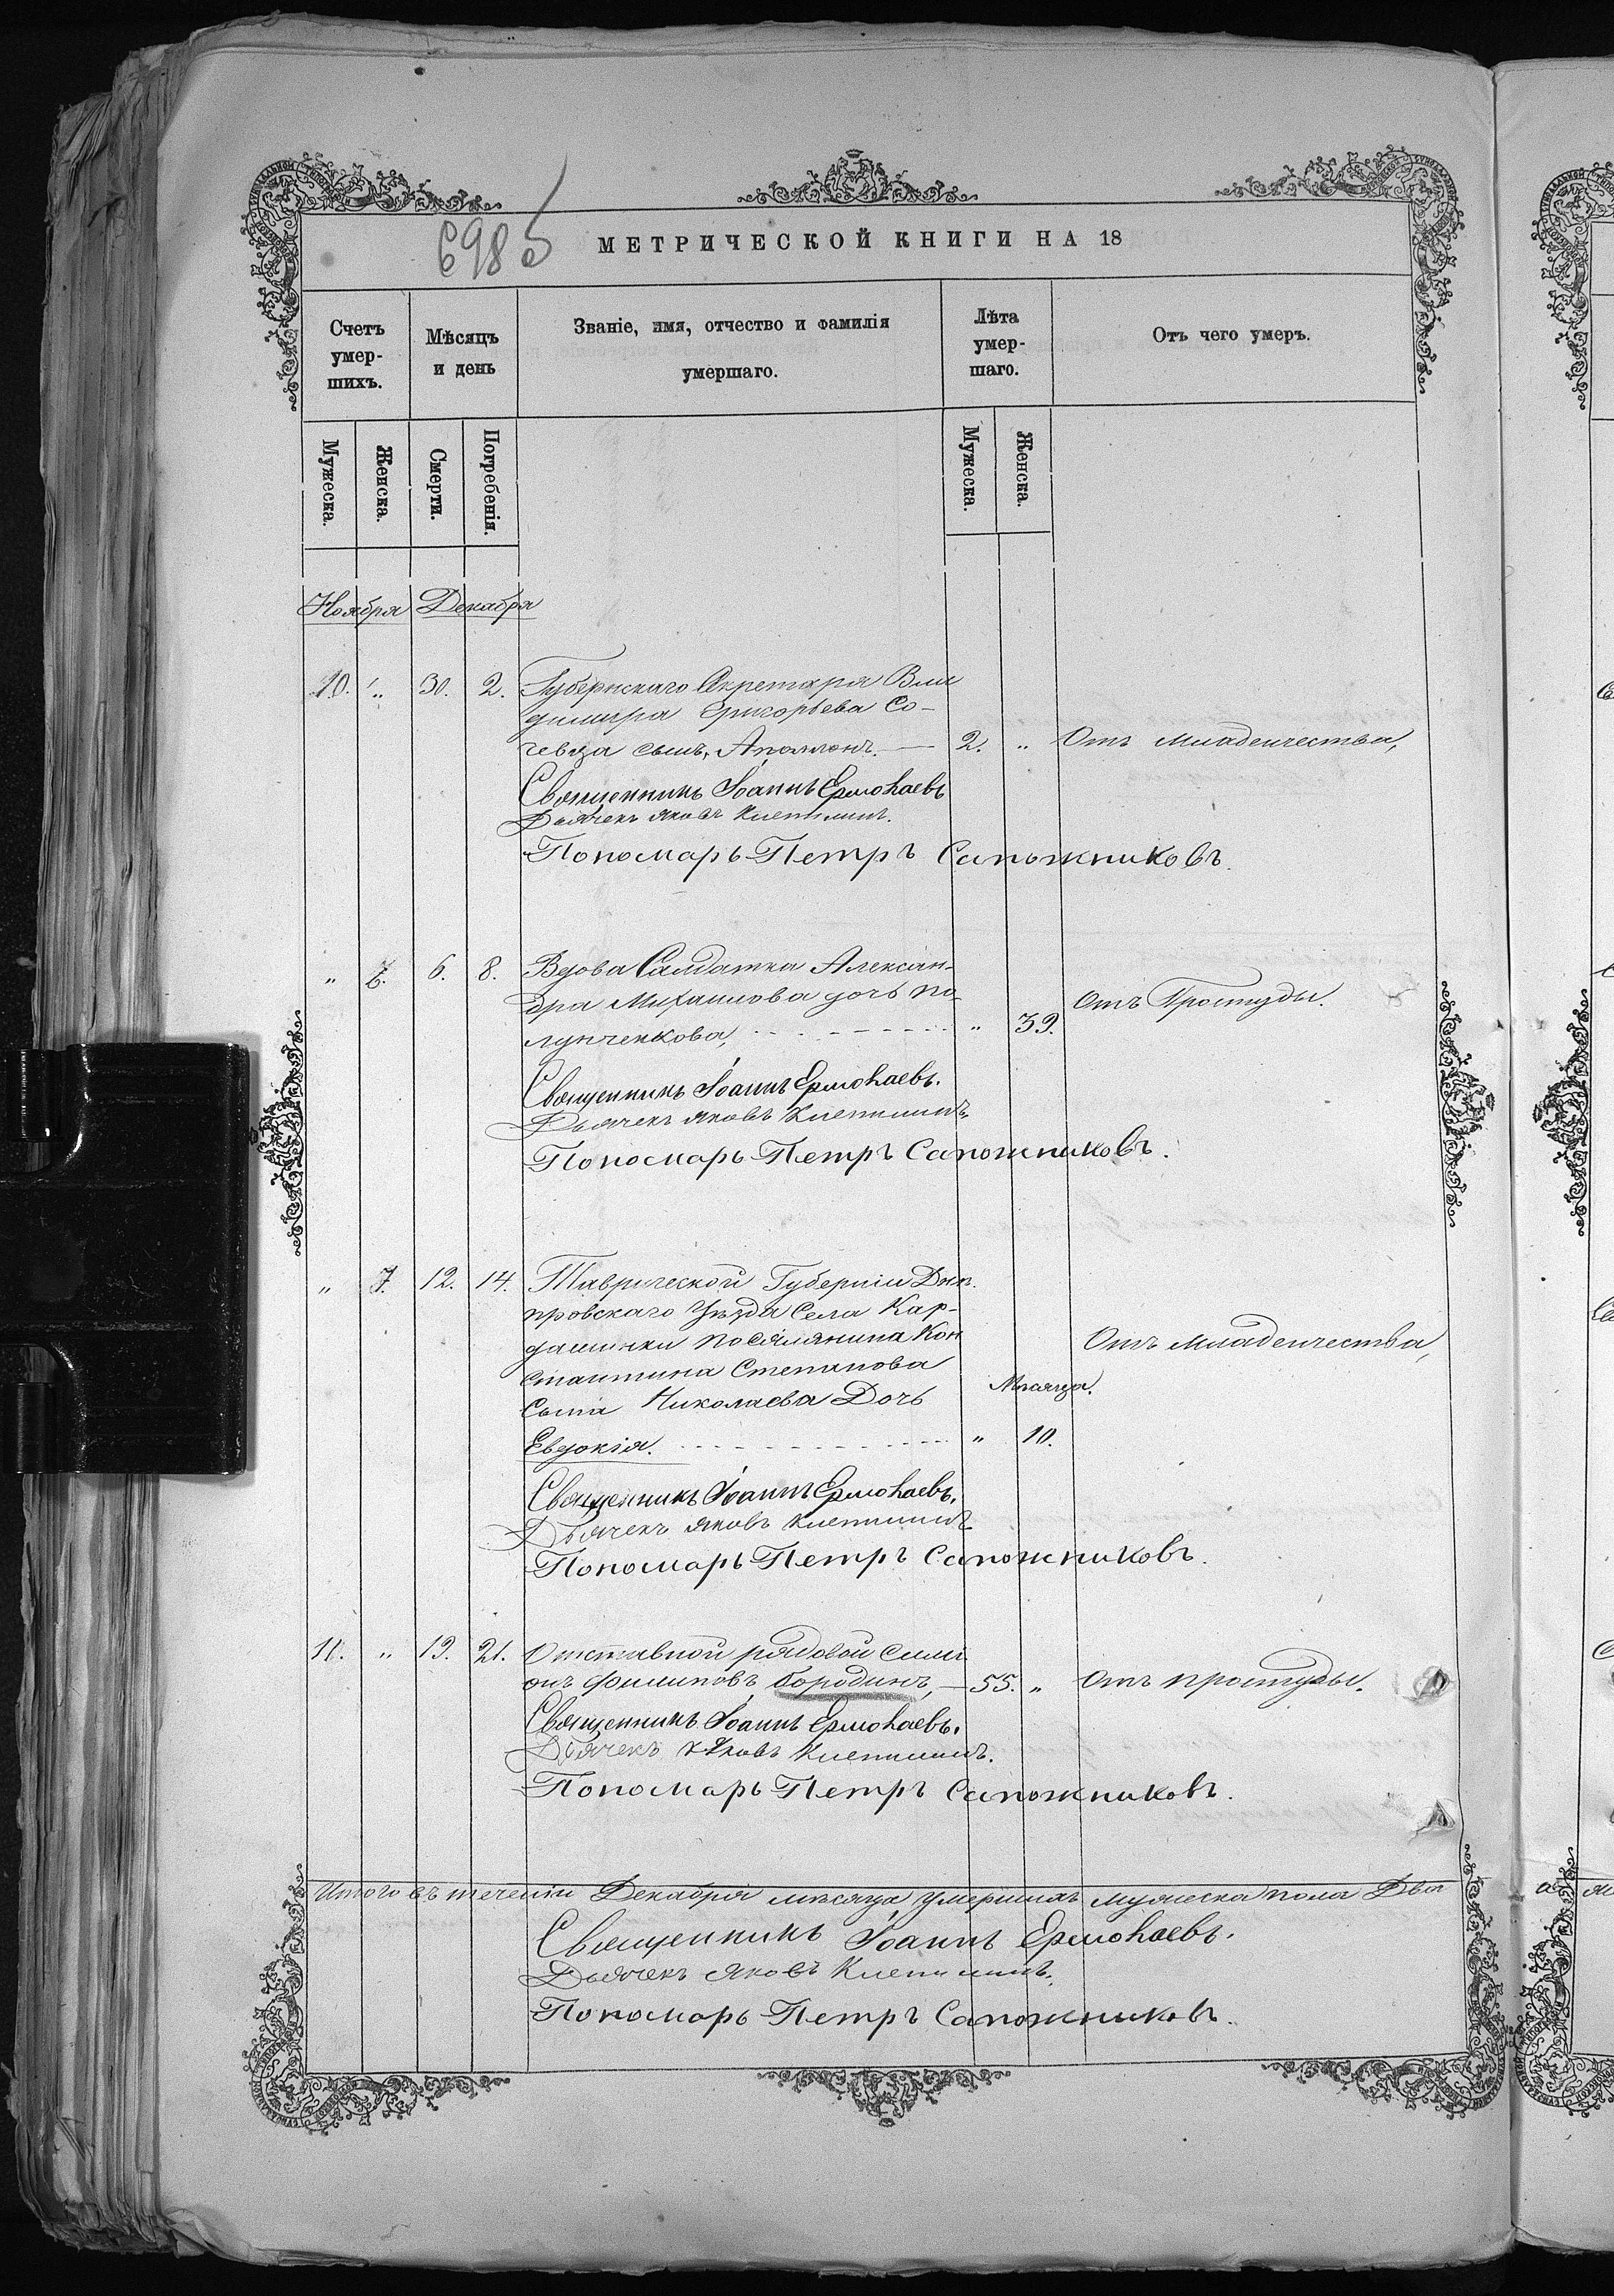 698б
МЕТРИЧЕСКОЙ КНИГИ НА 18
Счетъ умер-шихъ.
Мѣсяцъ и день
Званіе, имя, отчество и фамилія умершаго.
Лѣта умер-шаго.
Отъ чего умеръ.
Мужеска.
Женска.
Смерти.
Погребенія.
Мужеска.
Женска.
Ноября Декабря
10. " 30. 2. Губернскаго Секретаря Вла
димира Григорьева Со-
сынъ, Аполлонъ. — 2. " Отъ младенчества,
Священникъ Іоаннъ Ермолаевъ
Дьячекъ Яковъ
Пономарь Петръ Сапожниковъ.
" 6. 6. 8. Вдова Салдатка Алексан-
дра Михаилова дочь По-
лунченкова, " 39. Отъ Простуды.
Священникъ Іоаннъ Ермолаевъ.
Дьячекъ Яковъ
Пономарь Петръ Сапожниковъ.
" 7. 12. 14. Таврической Губерніи Днѣ
провскаго Уѣзда Села Кар-
дашинки поселянина Кон
стантина Степанова
Сына Николаева Дочь Мѣсяца.
Евдокія. " 10. Отъ младенчества,
Священникъ Іоаннъ Ермолаевъ.
Дьячекъ Яковъ
Пономарь Петръ Сапожниковъ.
11. " 19. 21. Отставной рядовой Симі
онъ Филиповъ Бородинъ, — 55. " Отъ простуды.
Священникъ Іоаннъ Ермолаевъ.
Дьячекъ Яковъ
Пономарь Петръ Сапожниковъ.
Итого въ теченіи Декабря мѣсяца умершихъ мужеска пола Два
Священникъ Іоаннъ Ермолаевъ.
Дьячекъ Яковъ
Пономарь Петръ Сапожниковъ.